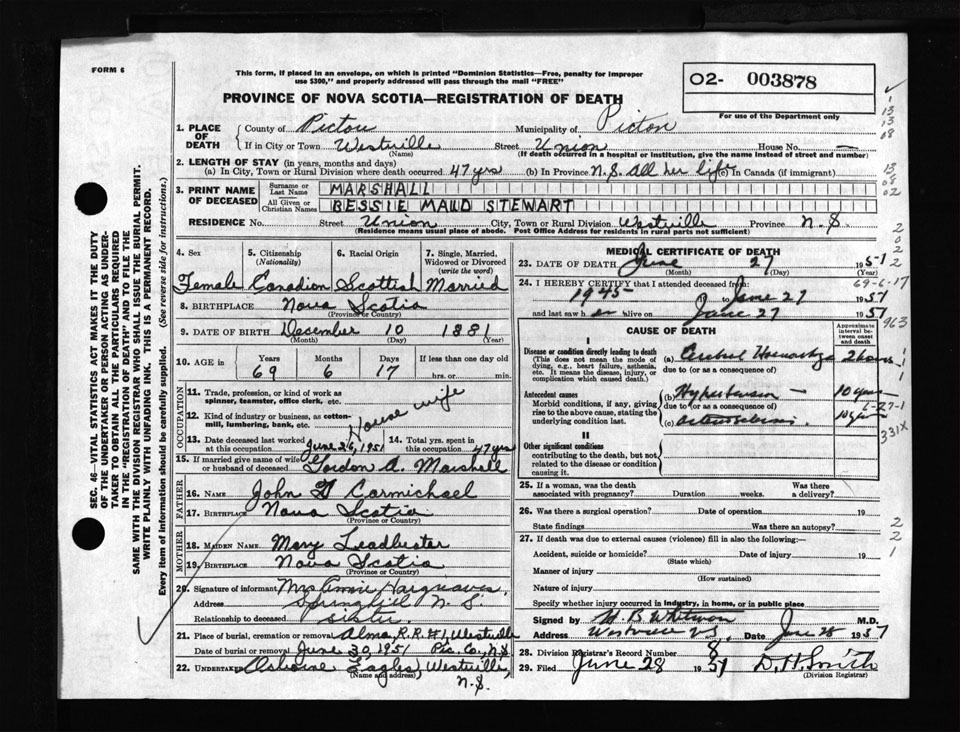 FORM 6
This form, if placed in an envelope, on which is printed "Dominion Statistics—Free, penalty for improper
use $300," and properly addressed will pass through the mail "FREE"
O2- 003878
PROVINCE OF NOVA SCOTIA—REGISTRATION OF DEATH
For use of the Department only
1. PLACE OF DEATH { County of Pictou Municipality of Pictou
If in City or Town Westville Street Union House No. —
(Name) (If death occurred in a hospital or institution, give the name instead of street and number)
2. LENGTH OF STAY (in years, months and days)
(a) In City, Town or Rural Division where death occurred 47 yrs (b) In Province N.S. All her life (c) In Canada (if immigrant)
3. PRINT NAME OF DECEASED { Surname or Last Name MARSHALL
All Given or Christian Names BESSIE MAUD STEWART
RESIDENCE No. Street Union City, Town or Rural Division Westville Province N.S
(Residence means usual place of abode. Post Office Address for residents in rural parts not sufficient)
SEC. 46—VITAL STATISTICS ACT MAKES IT THE DUTY
OF THE UNDERTAKER OR PERSON ACTING AS UNDER-
TAKER TO OBTAIN ALL THE PARTICULARS REQUIRED
IN THE "REGISTRATION OF DEATH" AND TO FILE THE
SAME WITH THE DIVISION REGISTRAR WHO SHALL ISSUE THE BURIAL PERMIT.
WRITE PLAINLY WITH UNFADING INK. THIS IS A PERMANENT RECORD.
Every item of information should be carefully supplied. (See reverse side for instructions.)
4. Sex 5. Citizenship (Nationality) 6. Racial Origin 7. Single, Married, Widowed or Divorced (write the word)
Female Canadian Scottish Married
8. BIRTHPLACE Nova Scotia
(Province or Country)
9. DATE OF BIRTH December 10 1881
(Month) (Day) (Year)
10. AGE in Years Months Days If less than one day old
69 6 17 hrs. or min.
OCCUPATION
11. Trade, profession, or kind of work as
spinner, teamster, office clerk, etc.
12. Kind of industry or business, as cotton-
mill, lumbering, bank, etc.
House wife
13. Date deceased last worked at this occupation June 26, 1951 14. Total yrs. spent in this occupation 47 yrs
15. If married give name of wife or husband of deceased Gordon A. Marshall
FATHER
16. NAME John G Carmichael
17. BIRTHPLACE Nova Scotia
(Province or Country)
MOTHER
18. MAIDEN NAME Mary Leadbetter
19. BIRTHPLACE Nova Scotia
(Province or Country)
20. Signature of informant Mrs Annie Hargreaves
Address Springhill N.S.
Relationship to deceased Sister
21. Place of burial, cremation or removal Alma, R.R.#1, Westville
Date of burial or removal June 30, 1951 Pic. Co, N.S
22. UNDERTAKER Osborne Eagles, Westville,
(Name and address)
N.S.
MEDICAL CERTIFICATE OF DEATH
23. DATE OF DEATH June 27 1951
(Month) (Day) (Year)
24. I HEREBY CERTIFY that I attended deceased from
1945 to June 27 1951
and last saw h er alive on June 27 1951
CAUSE OF DEATH
Approximate interval between onset and death
I
Disease or condition directly leading to death
(This does not mean the mode of
dying, e.g., heart failure, asthenia,
etc. It means the disease, injury, or
complication which caused death.)
(a) Cerebral Hemorrhage 2 hours
due to (or as a consequence of)
Antecedent causes
Morbid conditions, if any, giving
rise to the above cause, stating the
underlying condition last.
(b) Hypertension — 10 years
due to (or as a consequence of)
(c) 10 years
II
Other significant conditions
contributing to the death, but not
related to the disease or condition
causing it.
25. If a woman, was the death associated with pregnancy? Duration weeks. Was there a delivery?
26. Was there a surgical operation? Date of operation 19
State findings Was there an autopsy?
27. If death was due to external causes (violence) fill in also the following:—
Accident, suicide or homicide? Date of injury 19
(State which)
Manner of injury
(How sustained)
Nature of injury
Specify whether injury occurred in industry, in home, or in public place
Signed by M.D.
Address Westville N.S. Date June 28 1951
28. Division Registrar's Record Number 8
29. Filed June 28 1951 D. H. Smith
(Division Registrar)
1
13
13
08
13
08
02
2
2
2
69-6-17
963
1
1
6-27-1
331X
2
2
1